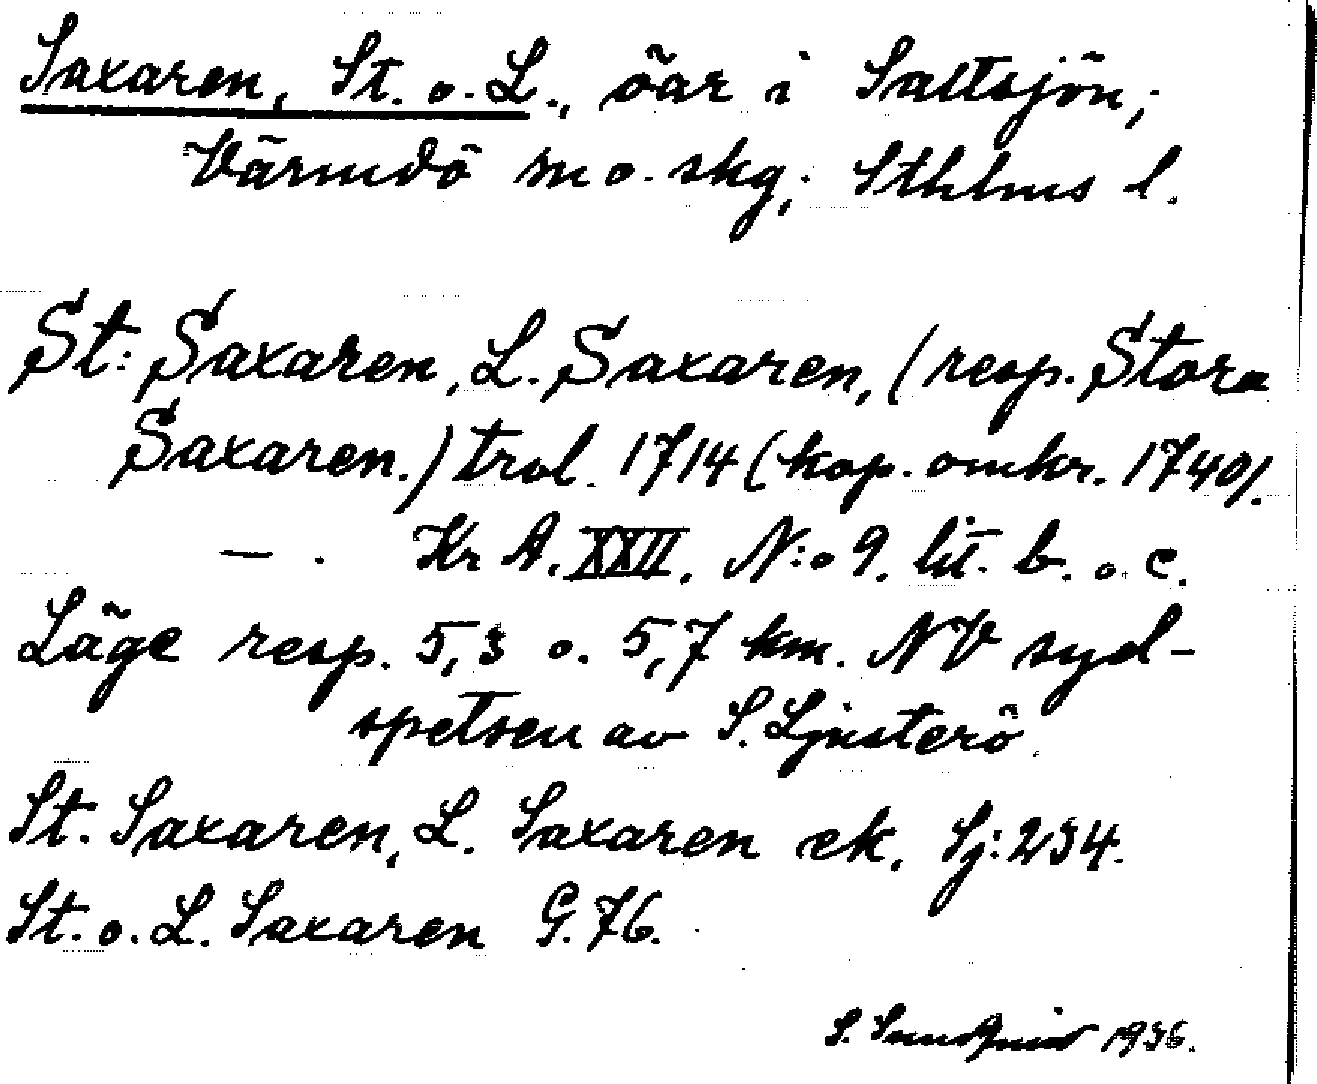 Saxaren, St. o. L., öar i Saltsjön,
Värmdö m o. skg, Sthlms l.
St: Saxaren, L. Saxaren, (resp. Stora
Saxaren.) trol. 1714 (kop. omkr. 1740).
— . Kr A. XXII. N:o 9. lit. b. o. c.
Läge resp. 5,3 o. 5,7 km. NV syd-
spetsen av S. Ljusterö.
St. Saxaren, L. Saxaren ek. Sj: 234.
St. o. L. Saxaren G. 76.
S. Sundquist 1936.